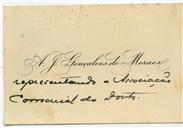 A. J. Gonçalves de Moraes
representando a Associação
Comercial do Porto.